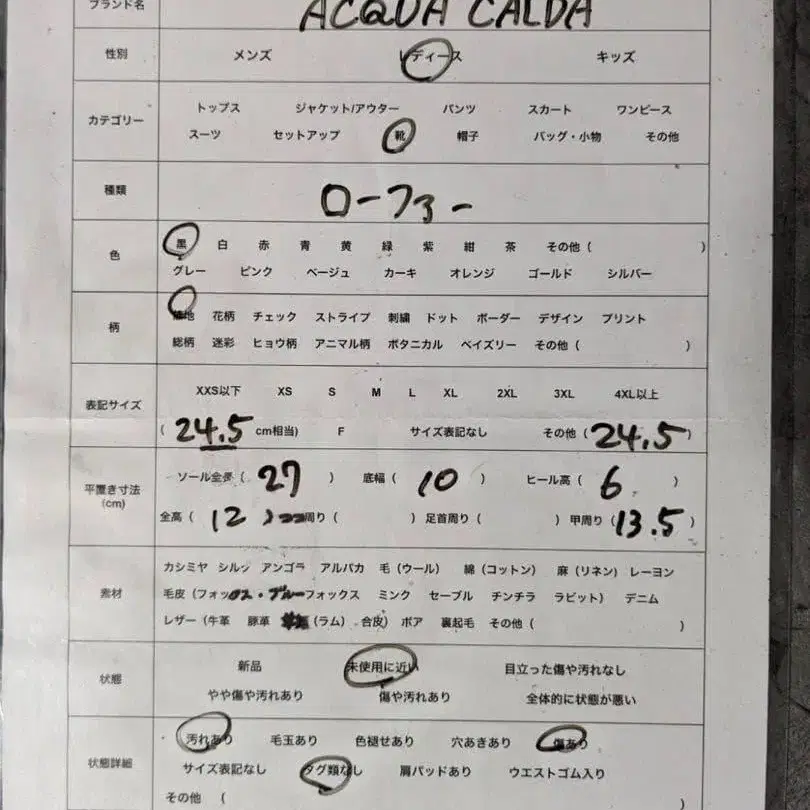 ブランド名 ACQUA CALDA
性別 メンズ レディース キッズ
カテゴリー トップス ジャケット/アウター パンツ スカート ワンピース
スーツ セットアップ 靴 帽子 バッグ・小物 その他
種類 ローファー
色 黒 白 赤 青 黄 緑 紫 紺 茶 その他 ( )
グレー ピンク ベージュ カーキ オレンジ ゴールド シルバー
柄 無地 花柄 チェック ストライプ 刺繍 ドット ボーダー デザイン プリント
総柄 迷彩 ヒョウ柄 アニマル柄 ボタニカル ペイズリー その他 ( )
表記サイズ XXS以下 XS S M L XL 2XL 3XL 4XL以上
( 24.5 cm相当) F サイズ表記なし その他 ( 24.5 )
平置き寸法 (cm) ソール全長 ( 27 ) 底幅 ( 10 ) ヒール高 ( 6 )
全高 ( 12 ) 周り ( ) 足首周り ( ) 甲周り ( 13.5 )
素材 カシミヤ シルク アンゴラ アルパカ 毛 (ウール) 綿 (コットン) 麻 (リネン) レーヨン
毛皮 (フォックス・ブルーフォックス ミンク セーブル チンチラ ラビット) デニム
レザー (牛革 豚革 (ラム) 合皮) ボア 裏起毛 その他 ( )
状態 新品 未使用に近い 目立った傷や汚れなし
やや傷や汚れあり 傷や汚れあり 全体的に状態が悪い
状態詳細 汚れあり 毛玉あり 色褪せあり 穴あきあり 傷あり
サイズ表記なし タグ類なし 肩パッドあり ウエストゴム入り
その他 ( )